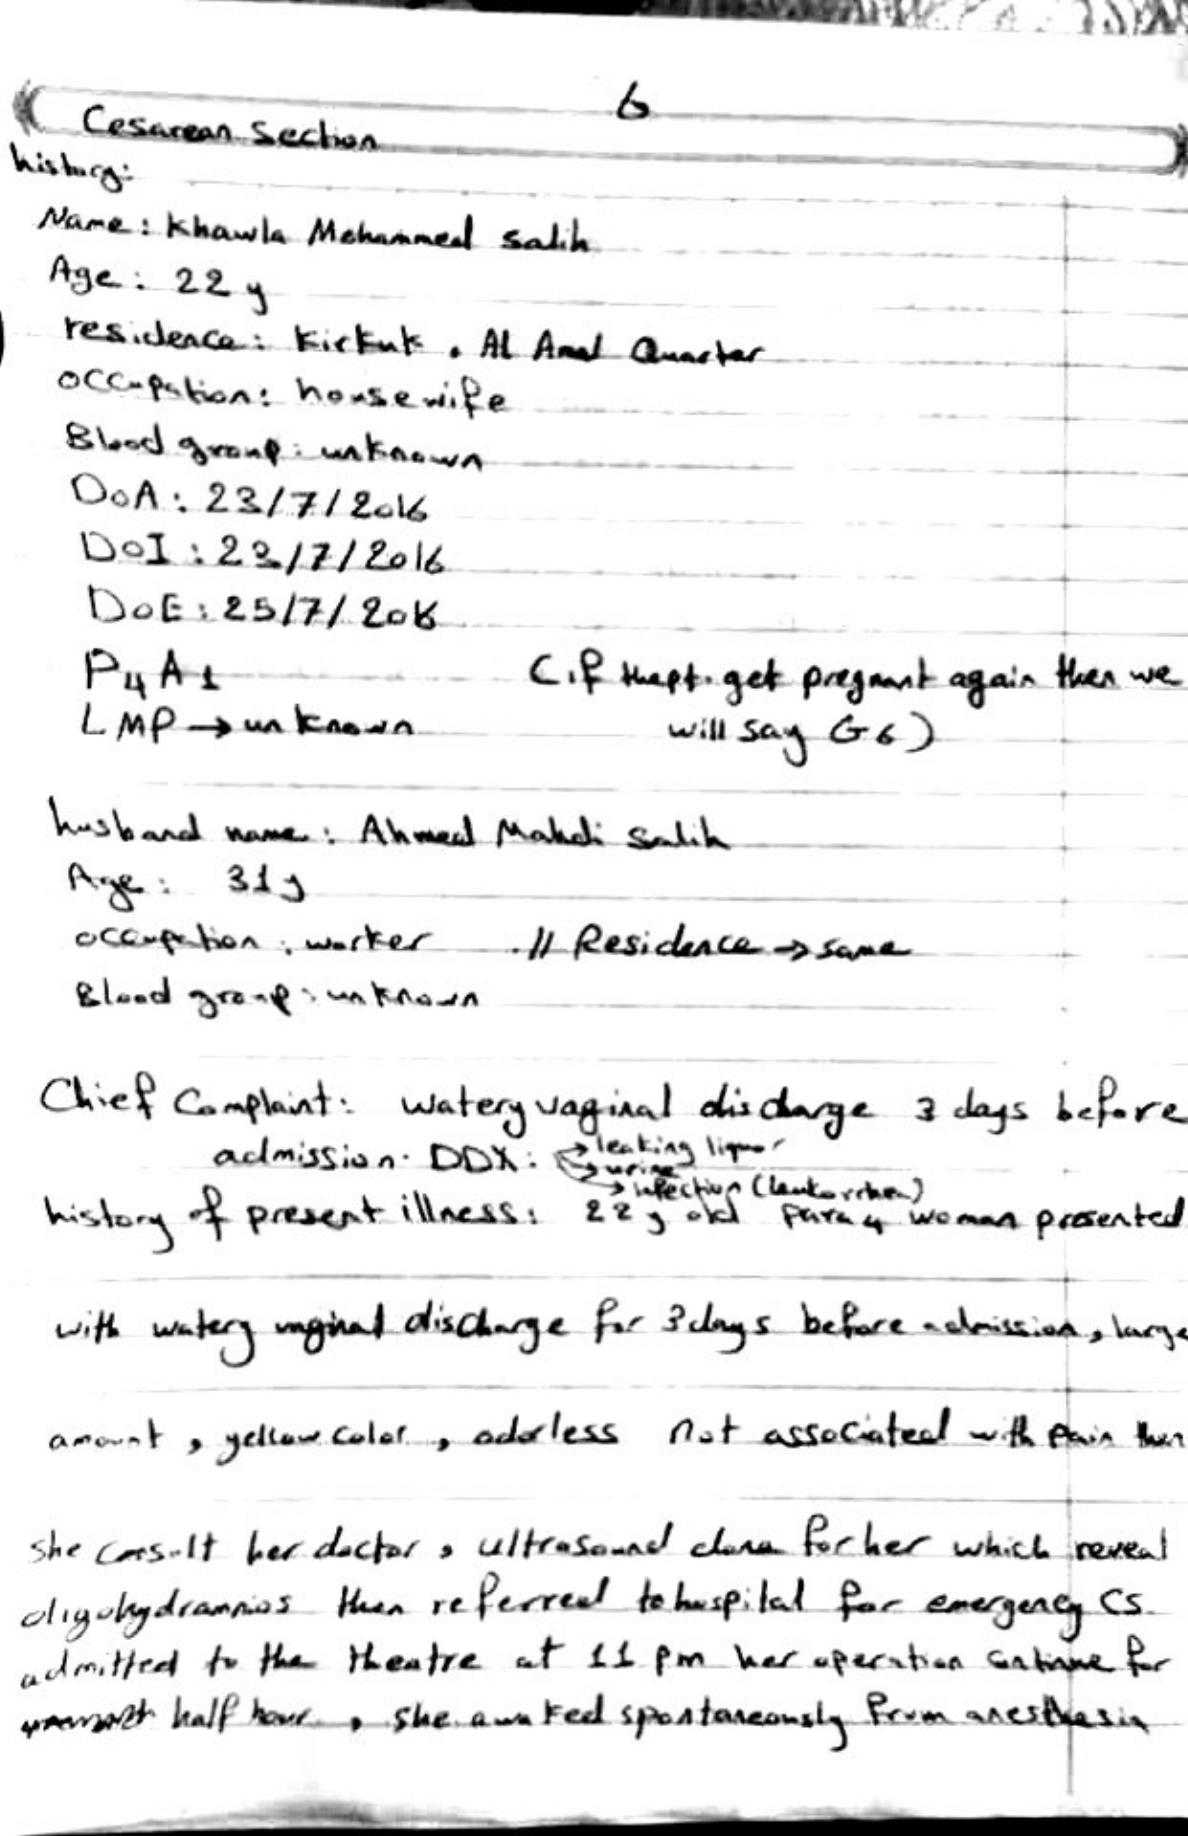 6
Cesarean Section
history:
Name: Khawla Mohammed Salih
Age: 22 y
residence: Kirkuk . Al Amal Quarter
occupation: housewife
Blood group: unknown
DoA: 23/7/2016
DoI: 23/7/2016
DoE: 25/7/2016
P4 A1 (if the pt. get pregnant again then we
LMP → unknown will say G6)
husband name: Ahmed Mahdi Salih
Age: 31 y
occupation: worker .// Residence → same
Blood group: unknown
Chief Complaint: watery vaginal discharge 3 days before
admission. DDX: → leaking liquor
→ urine
→ infection (leukorrhea)
history of present illness: 22 y old para 4 woman presented
with watery vaginal discharge for 3 days before admission, large
amount, yellow color, odorless not associated with pain then
she consult her doctor, ultrasound done for her which reveal
oligohydramnios then referred to hospital for emergency CS.
admitted to the theatre at 11 pm her operation continue for
half hour, she awaked spontaneously from anesthesia